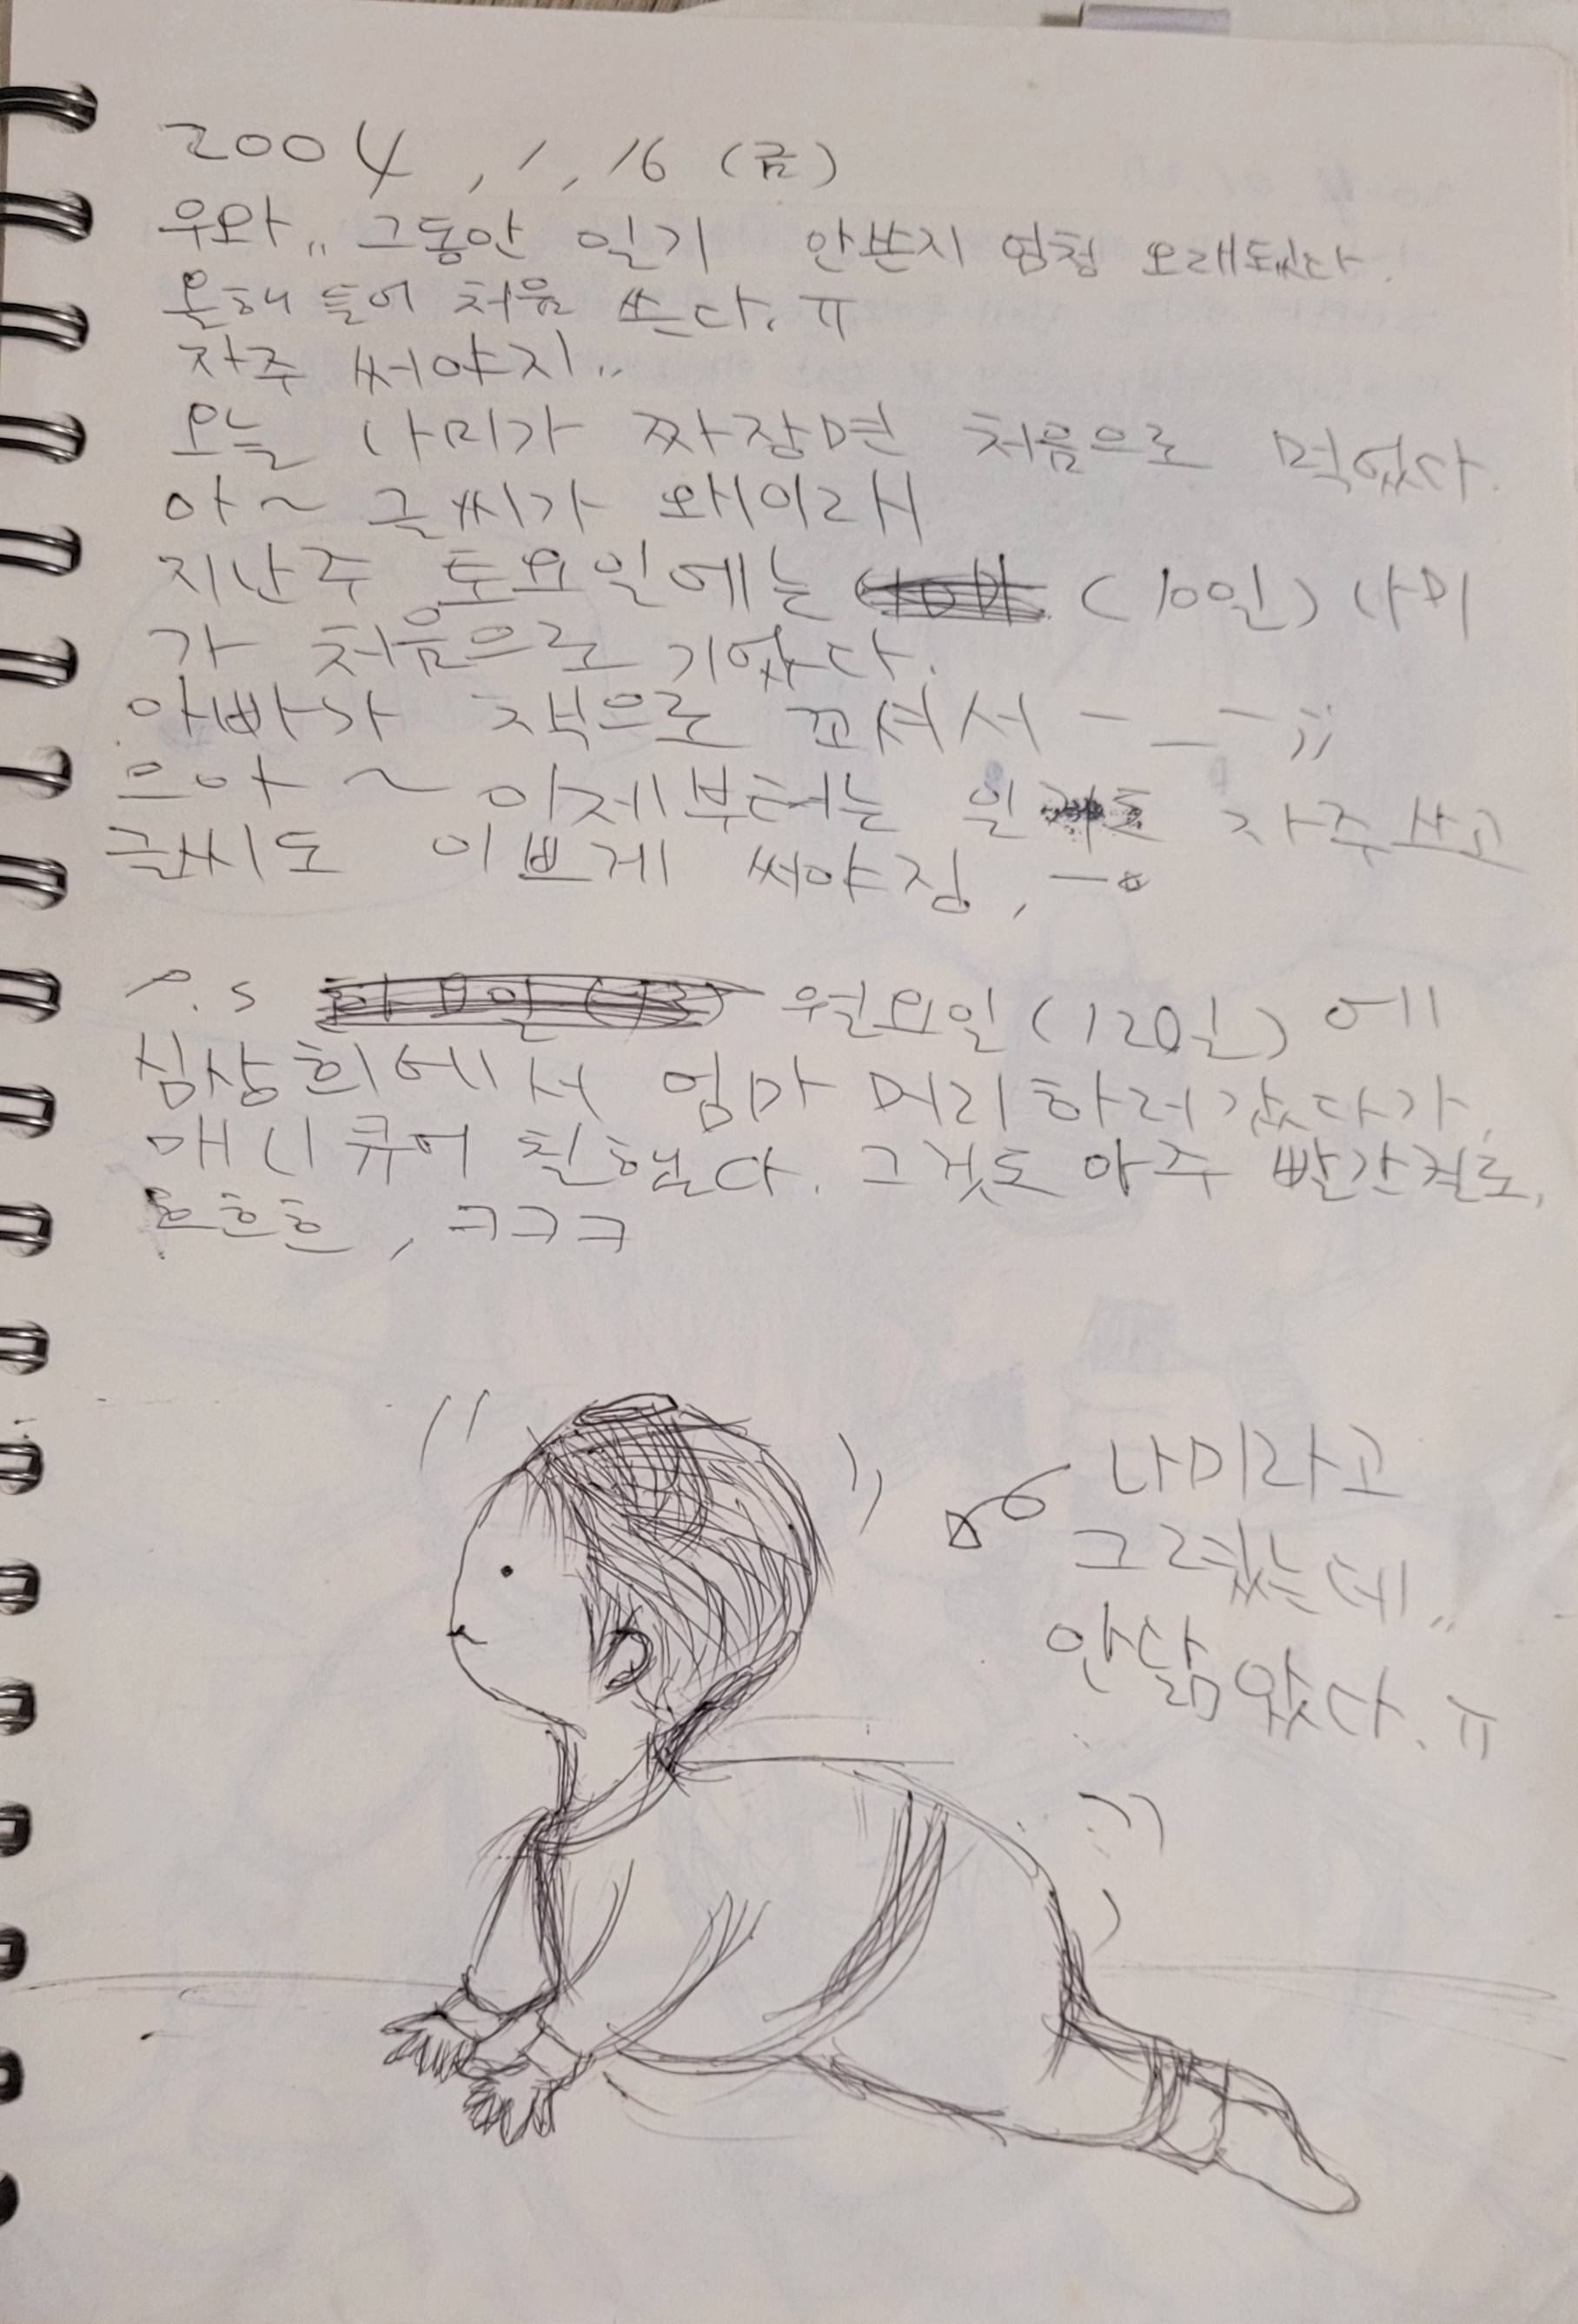 2004, 1, 16 (금)
우와.. 그동안 일기 안쓴지 엄청 오래됬다.
올해 들어 처음 쓴다. ㅠ
자주 써야지..
오늘 나미가 짜장면 처음으로 먹었다.
아~ 글씨가 왜이래
지난주 토요일에는 (10일) 나미
가 처음으로 기었다.
아빠가 책으로 꼬셔서 - _ -;;
으아~ 이제부터는 자주쓰고
글씨도 이쁘게 써야징,
P.S 월요일(12일)에
심상희에서 엄마 머리하러갔다가,
매니큐어 칠했다. 그것도 아주 빨간걸로,
흐흐흐, ㅋㅋㅋ
나미라고
그렸는데..
안닮았다. ㅠ